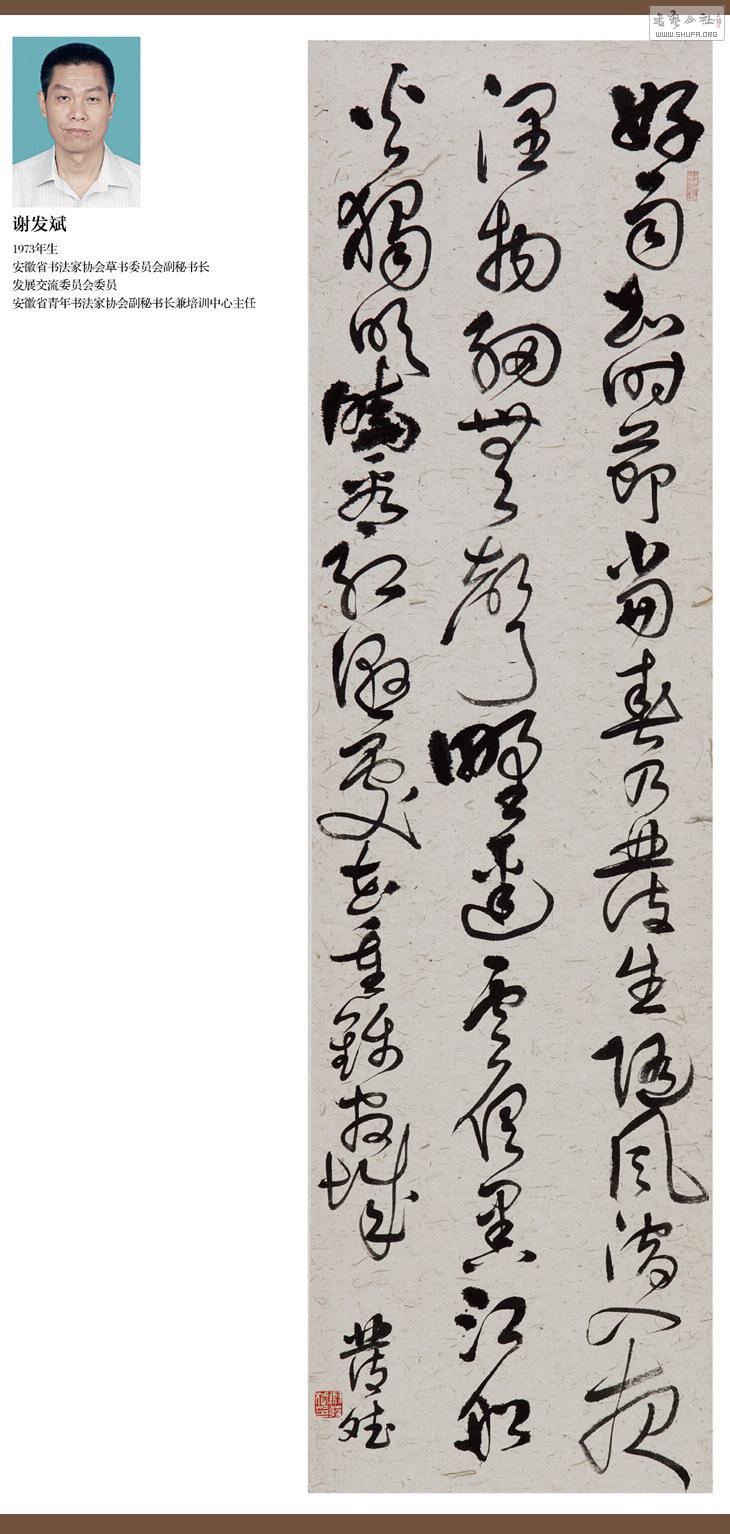 書藝公社
WWW.SHUFA.ORG
谢发斌
1973年生
安徽省书法家协会草书委员会副秘书长
发展交流委员会委员
安徽省青年书法家协会副秘书长兼培训中心主任
好雨知時節當春乃發生随風潛入夜
潤物細無聲野逕雲俱黑江船
火獨明曉看紅濕處花重錦官城
發斌